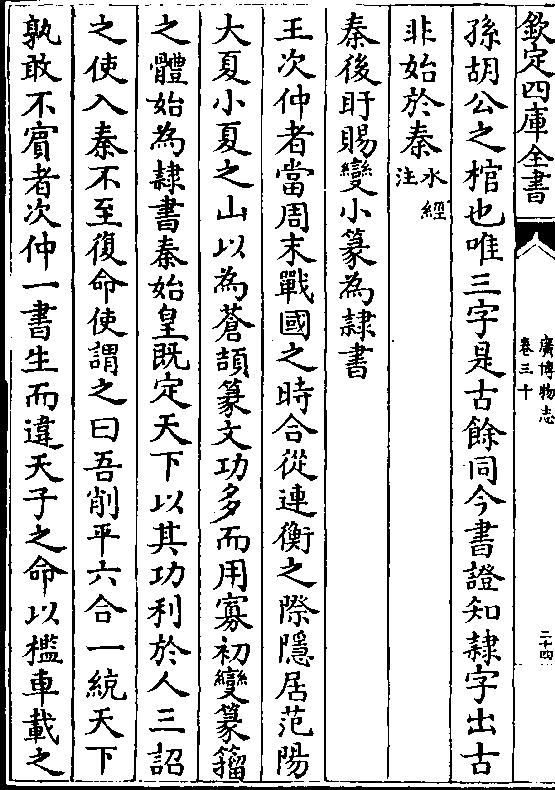 欽定四庫全書
廣博物志
卷三十
二十四
孫胡公之棺也唯三字是古餘同今書證知隷字出古
非始於秦水經
注
秦後盱賜變小篆為隷書
王次仲者當周末戰國之時合從連衡之際隱居范陽
大夏小夏之山以為蒼頡篆文功多而用寡初變篆籕
之體始為隷書秦始皇既定天下以其功利於人三詔
之使入秦不至復命使謂之曰吾削平六合一統天下
孰敢不賓者次仲一書生而違天子之命以檻車載之